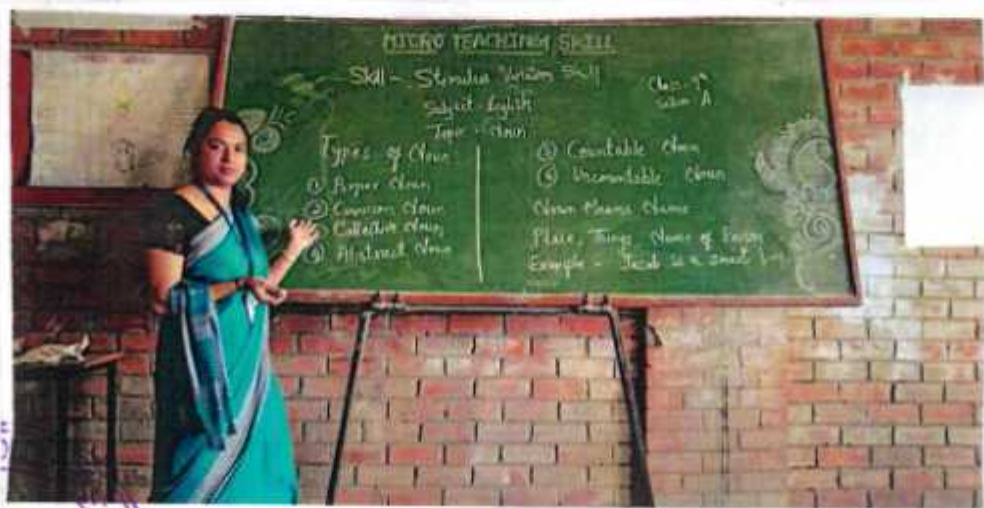 MICRO TEACHING SKILL
Skill - Stimulus Variation Skill
Subject - English
Topic - Noun
Class - 9th
Section A
Types of Noun :
① Proper Noun
② Common Noun
③ Collective Noun
④ Abstract Noun
⑤ Countable Noun
⑥ Uncountable Noun
Noun Means Name
Place, Thing Name of Person
Example - Jacob is a smart